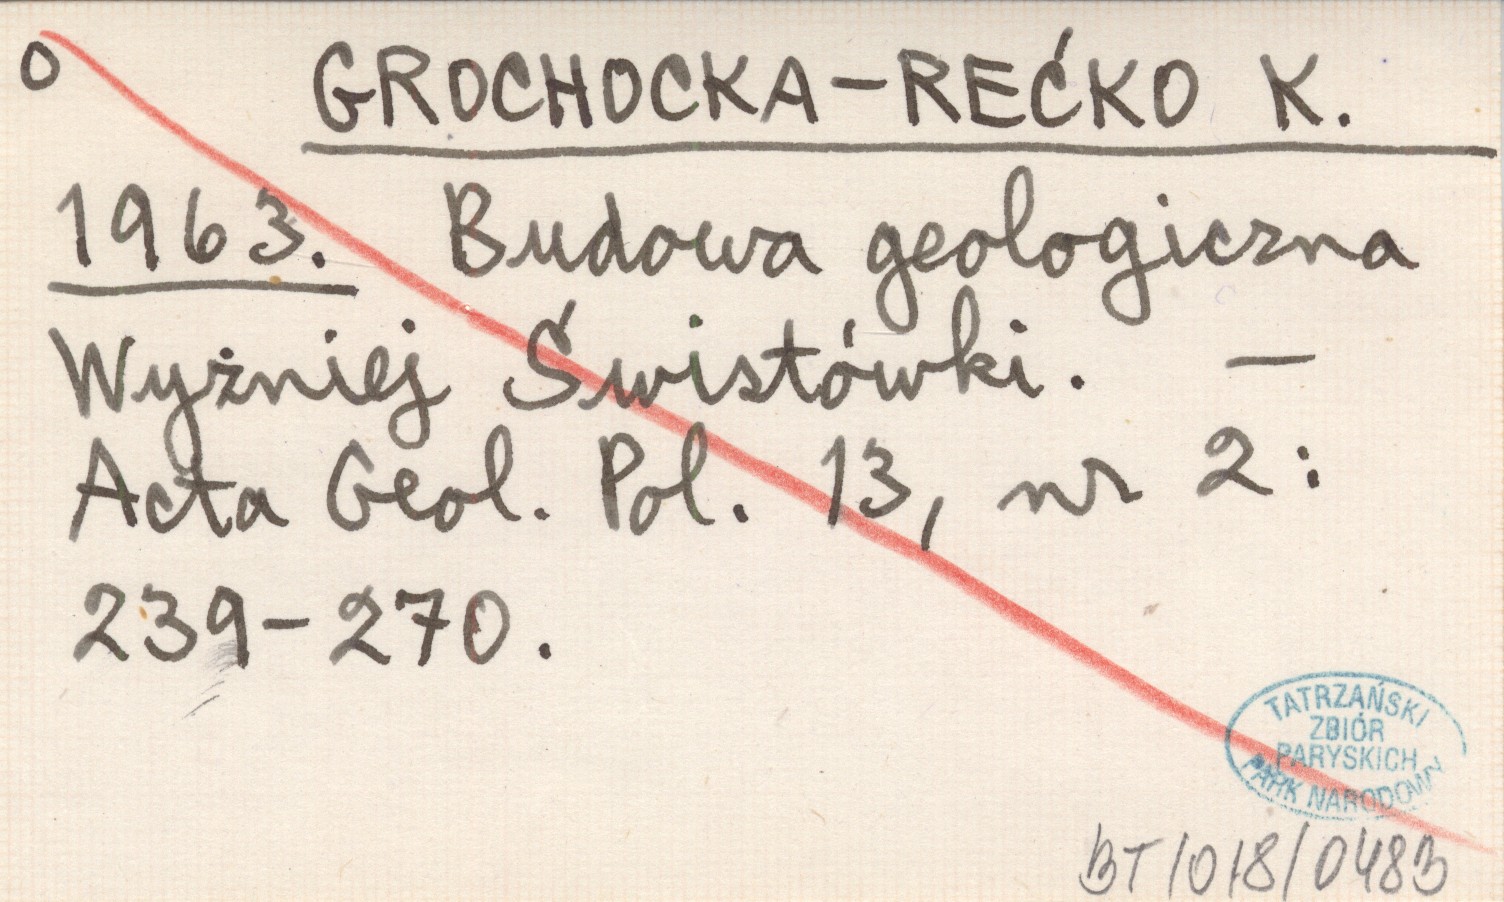 O
GROCHOCKA-REĆKO K.
1963. Budowa geologiczna
Wyżniej Świstówki. —
Acta Geol. Pol. 13, nr 2:
239-270.
TATRZAŃSKI
ZBIÓR
PARYSKICH
PARK NARODOWY
BT/018/0483